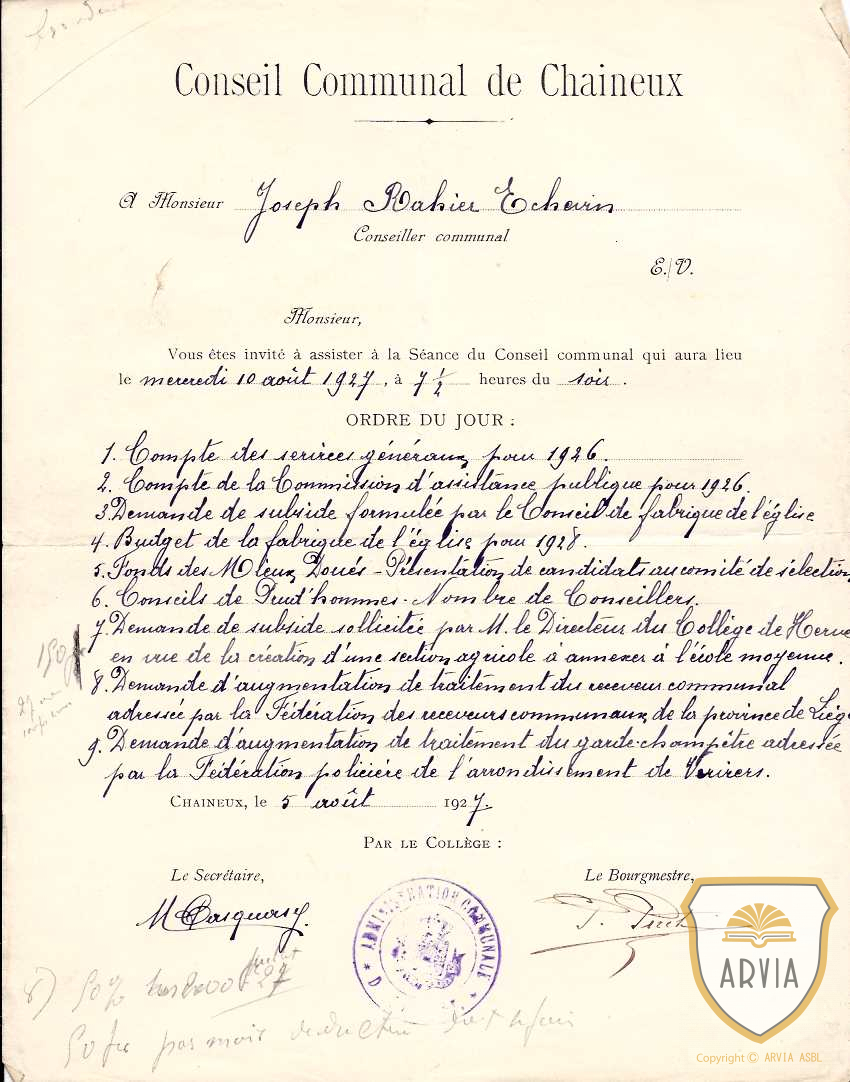 Conseil Communal de Chaineux
A Monsieur Joseph Rahier Echevin
Conseiller communal
E./V.
Monsieur,
Vous êtes invité à assister à la Séance du Conseil communal qui aura lieu
le mercredi 10 août 1927, à 7 1/2 heures du soir.
ORDRE DU JOUR :
1. Compte des services généraux pour 1926.
2. Compte de la Commission d'assistance publique pour 1926.
3. Demande de subside formulée par le Conseil de fabrique de l'église
4. Budget de la fabrique de l'église pour 1928.
5. Fonds des Mieux Doués - Présentation de candidats au comité de sélection
6. Conseils de Prud'hommes - Nombre de Conseillers.
7. Demande de subside sollicitée par M. le Directeur du Collège de Herve
en vue de la création d'une section agricole à annexer à l'école moyenne.
150
8. Demande d'augmentation de traitement du receveur communal
adressée par la Fédération des receveurs communaux de la province de Liège
9. Demande d'augmentation de traitement du garde-champêtre adressée
par la Fédération policière de l'arrondissement de Verviers.
CHAINEUX, le 5 août 1927.
PAR LE COLLÈGE :
Le Secrétaire,
Le Bourgmestre,
ADMINISTRATION COMMUNALE
8) 50%
50 frs par mois
ARVIA
Copyright © ARVIA ASBL